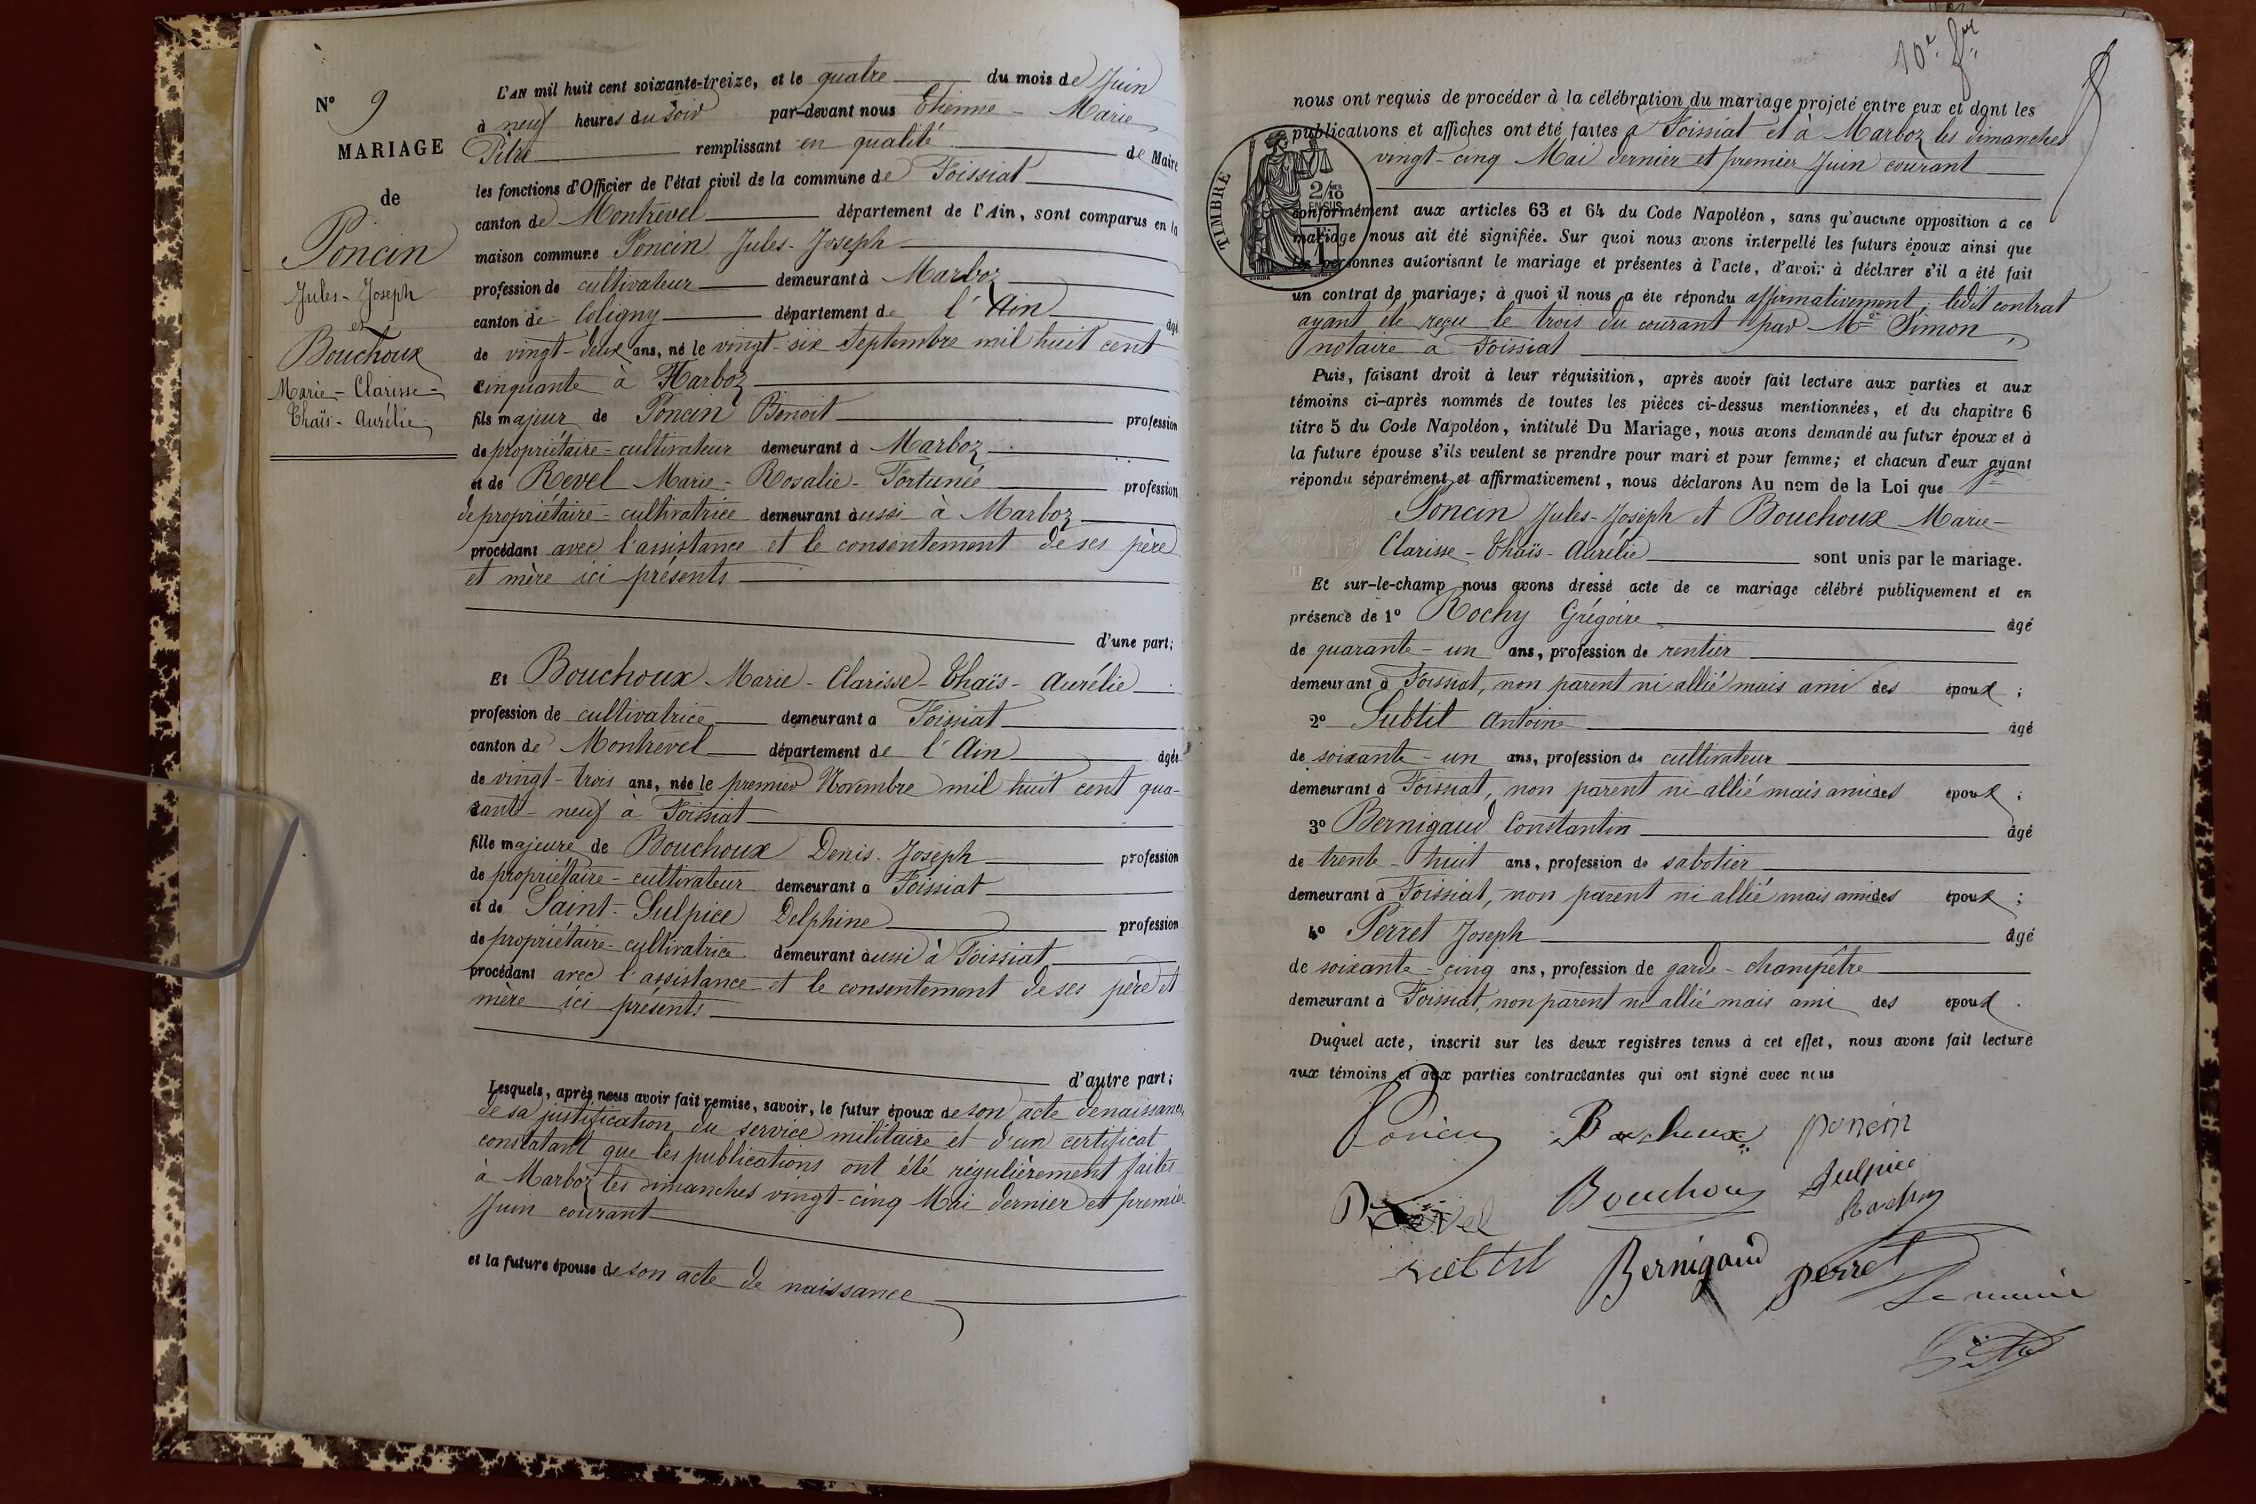 N° 9
MARIAGE
de
Poncin
Jules - Joseph
et
Bouchoux
Marie - Clarisse -
Thaïs - Aurélie
L'AN mil huit cent soixante-treize, et le quatre du mois de Juin
à neuf heures du soir par-devant nous Etienne - Marie
Pitre remplissant en qualité de Maire
les fonctions d'Officier de l'état civil de la commune de Foissiat
canton de Montrevel département de l'Ain, sont comparus en la
maison commune Poncin Jules - Joseph
profession de cultivateur demeurant à Marboz
canton de Coligny département de l'Ain âgé
de vingt - deux ans, né le vingt - six Septembre mil huit cent
cinquante à Marboz
fils majeur de Poncin Benoit profession
de propriétaire - cultivateur demeurant à Marboz
et de Revel Marie - Rosalie - Fortunée profession
de propriétaire - cultivatrice demeurant aussi à Marboz
procédant avec l'assistance et le consentement de ses père
et mère ici présents
d'une part;
Et Bouchoux Marie - Clarisse - Thaïs - Aurélie
profession de cultivatrice demeurant à Foissiat
canton de Montrevel département de l'Ain âgée
de vingt - trois ans, née le premier Novembre mil huit cent qua-
rante - neuf à Foissiat
fille majeure de Bouchoux Denis - Joseph profession
de propriétaire - cultivateur demeurant à Foissiat
et de Saint - Sulpice Delphine profession
de propriétaire - cultivatrice demeurant aussi à Foissiat
procédant avec l'assistance et le consentement de ses père et
mère ici présents
d'autre part;
Lesquels, après nous avoir fait remise, savoir, le futur époux de son acte de naissance,
de sa justification du service militaire et d'un certificat
constatant que les publications ont été régulièrement faites
à Marboz les dimanches vingt - cinq Mai dernier et premier
Juin courant
et la future épouse de son acte de naissance
nous ont requis de procéder à la célébration du mariage projeté entre eux et dont les
publications et affiches ont été faites à Foissiat et à Marboz les dimanches
vingt - cinq Mai dernier et premier Juin courant
TIMBRE
2/10 EN SUS
conformément aux articles 63 et 64 du Code Napoléon, sans qu'aucune opposition à ce
mariage nous ait été signifiée. Sur quoi nous avons interpellé les futurs époux ainsi que
les personnes autorisant le mariage et présentes à l'acte, d'avoir à déclarer s'il a été fait
un contrat de mariage; à quoi il nous a été répondu affirmativement, ledit contrat
ayant été reçu le trois du courant par Me Simon,
notaire à Foissiat
Puis, faisant droit à leur réquisition, après avoir fait lecture aux parties et aux
témoins ci-après nommés de toutes les pièces ci-dessus mentionnées, et du chapitre 6
titre 5 du Code Napoléon, intitulé Du Mariage, nous avons demandé au futur époux et à
la future épouse s'ils veulent se prendre pour mari et pour femme; et chacun d'eux ayant
répondu séparément et affirmativement, nous déclarons Au nom de la Loi que
Poncin Jules - Joseph et Bouchoux Marie -
Clarisse - Thaïs - Aurélie sont unis par le mariage.
Et sur-le-champ nous avons dressé acte de ce mariage célébré publiquement et en
présence de 1° Rochy Grégoire âgé
de quarante - un ans, profession de rentier
demeurant à Foissiat, non parent ni allié mais ami des époux;
2° Subtil Antoine âgé
de soixante - un ans, profession de cultivateur
demeurant à Foissiat, non parent ni allié mais ami des époux;
3° Bernigaud Constantin âgé
de trente - huit ans, profession de sabotier
demeurant à Foissiat, non parent ni allié mais ami des époux;
4° Perret Joseph âgé
de soixante - cinq ans, profession de garde - champêtre
demeurant à Foissiat, non parent ni allié mais ami des époux.
Duquel acte, inscrit sur les deux registres tenus à cet effet, nous avons fait lecture
aux témoins et aux parties contractantes qui ont signé avec nous
Poncin Bouchoux poncin
Revel Bouchoux Sulpice
Bernigaud perret
Le maire